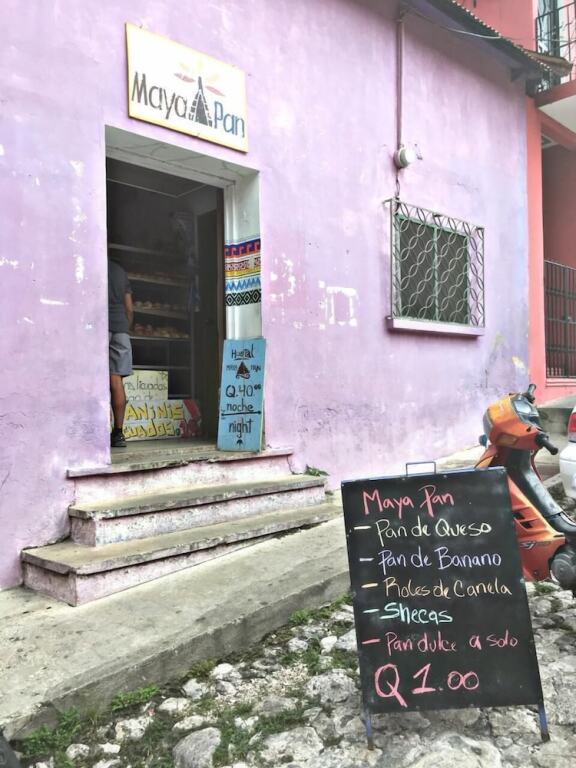 Maya Pan
Hostal
MAYA PAN
Q.40.00
noche
night
PANINIS
Maya Pan
- Pan de Queso
- Pan de Banano
- Roles de Canela
- Shecas
- Pan dulce a solo
Q 1.00